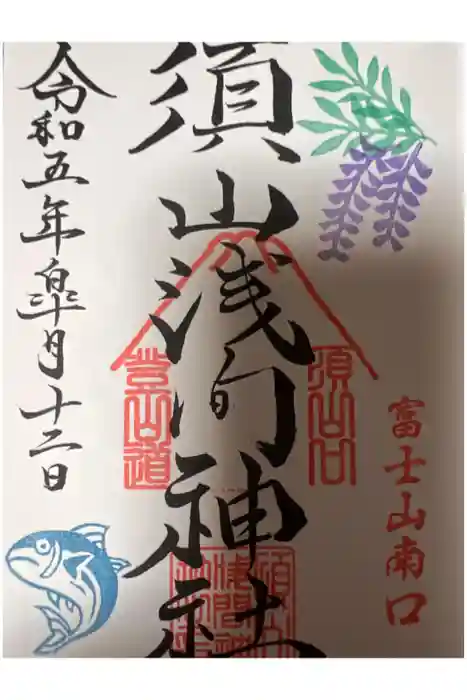 富士山南口
須山浅間神社
令和五年皐月十二日
須山口
登山道